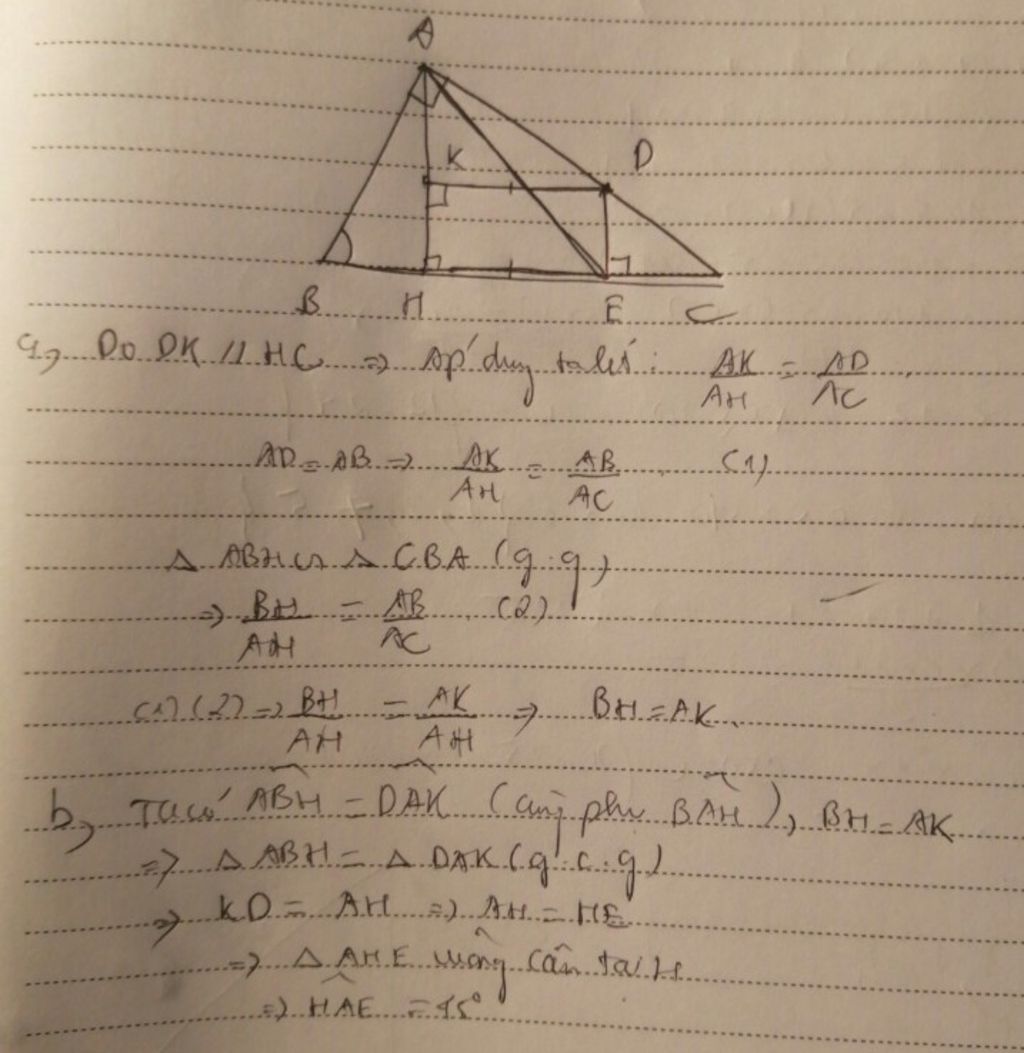 A
K
D
B H E C
a, Do DK // HC => Áp dụng talét : AK/AH = AD/AC .
AD = AB => AK/AH = AB/AC . (1)
Δ ABH ∽ Δ CBA (g.g)
=> BH/AH = AB/AC . (2)
(1) (2) => BH/AH = AK/AH => BH = AK .
b, Ta có ABH^ = DAK^ (cùng phụ BAH^), BH = AK
=> Δ ABH = Δ DAK (g.c.g)
=> KD = AH => AH = HE
=> Δ AHE vuông cân tại H
=> HAE^ = 45°